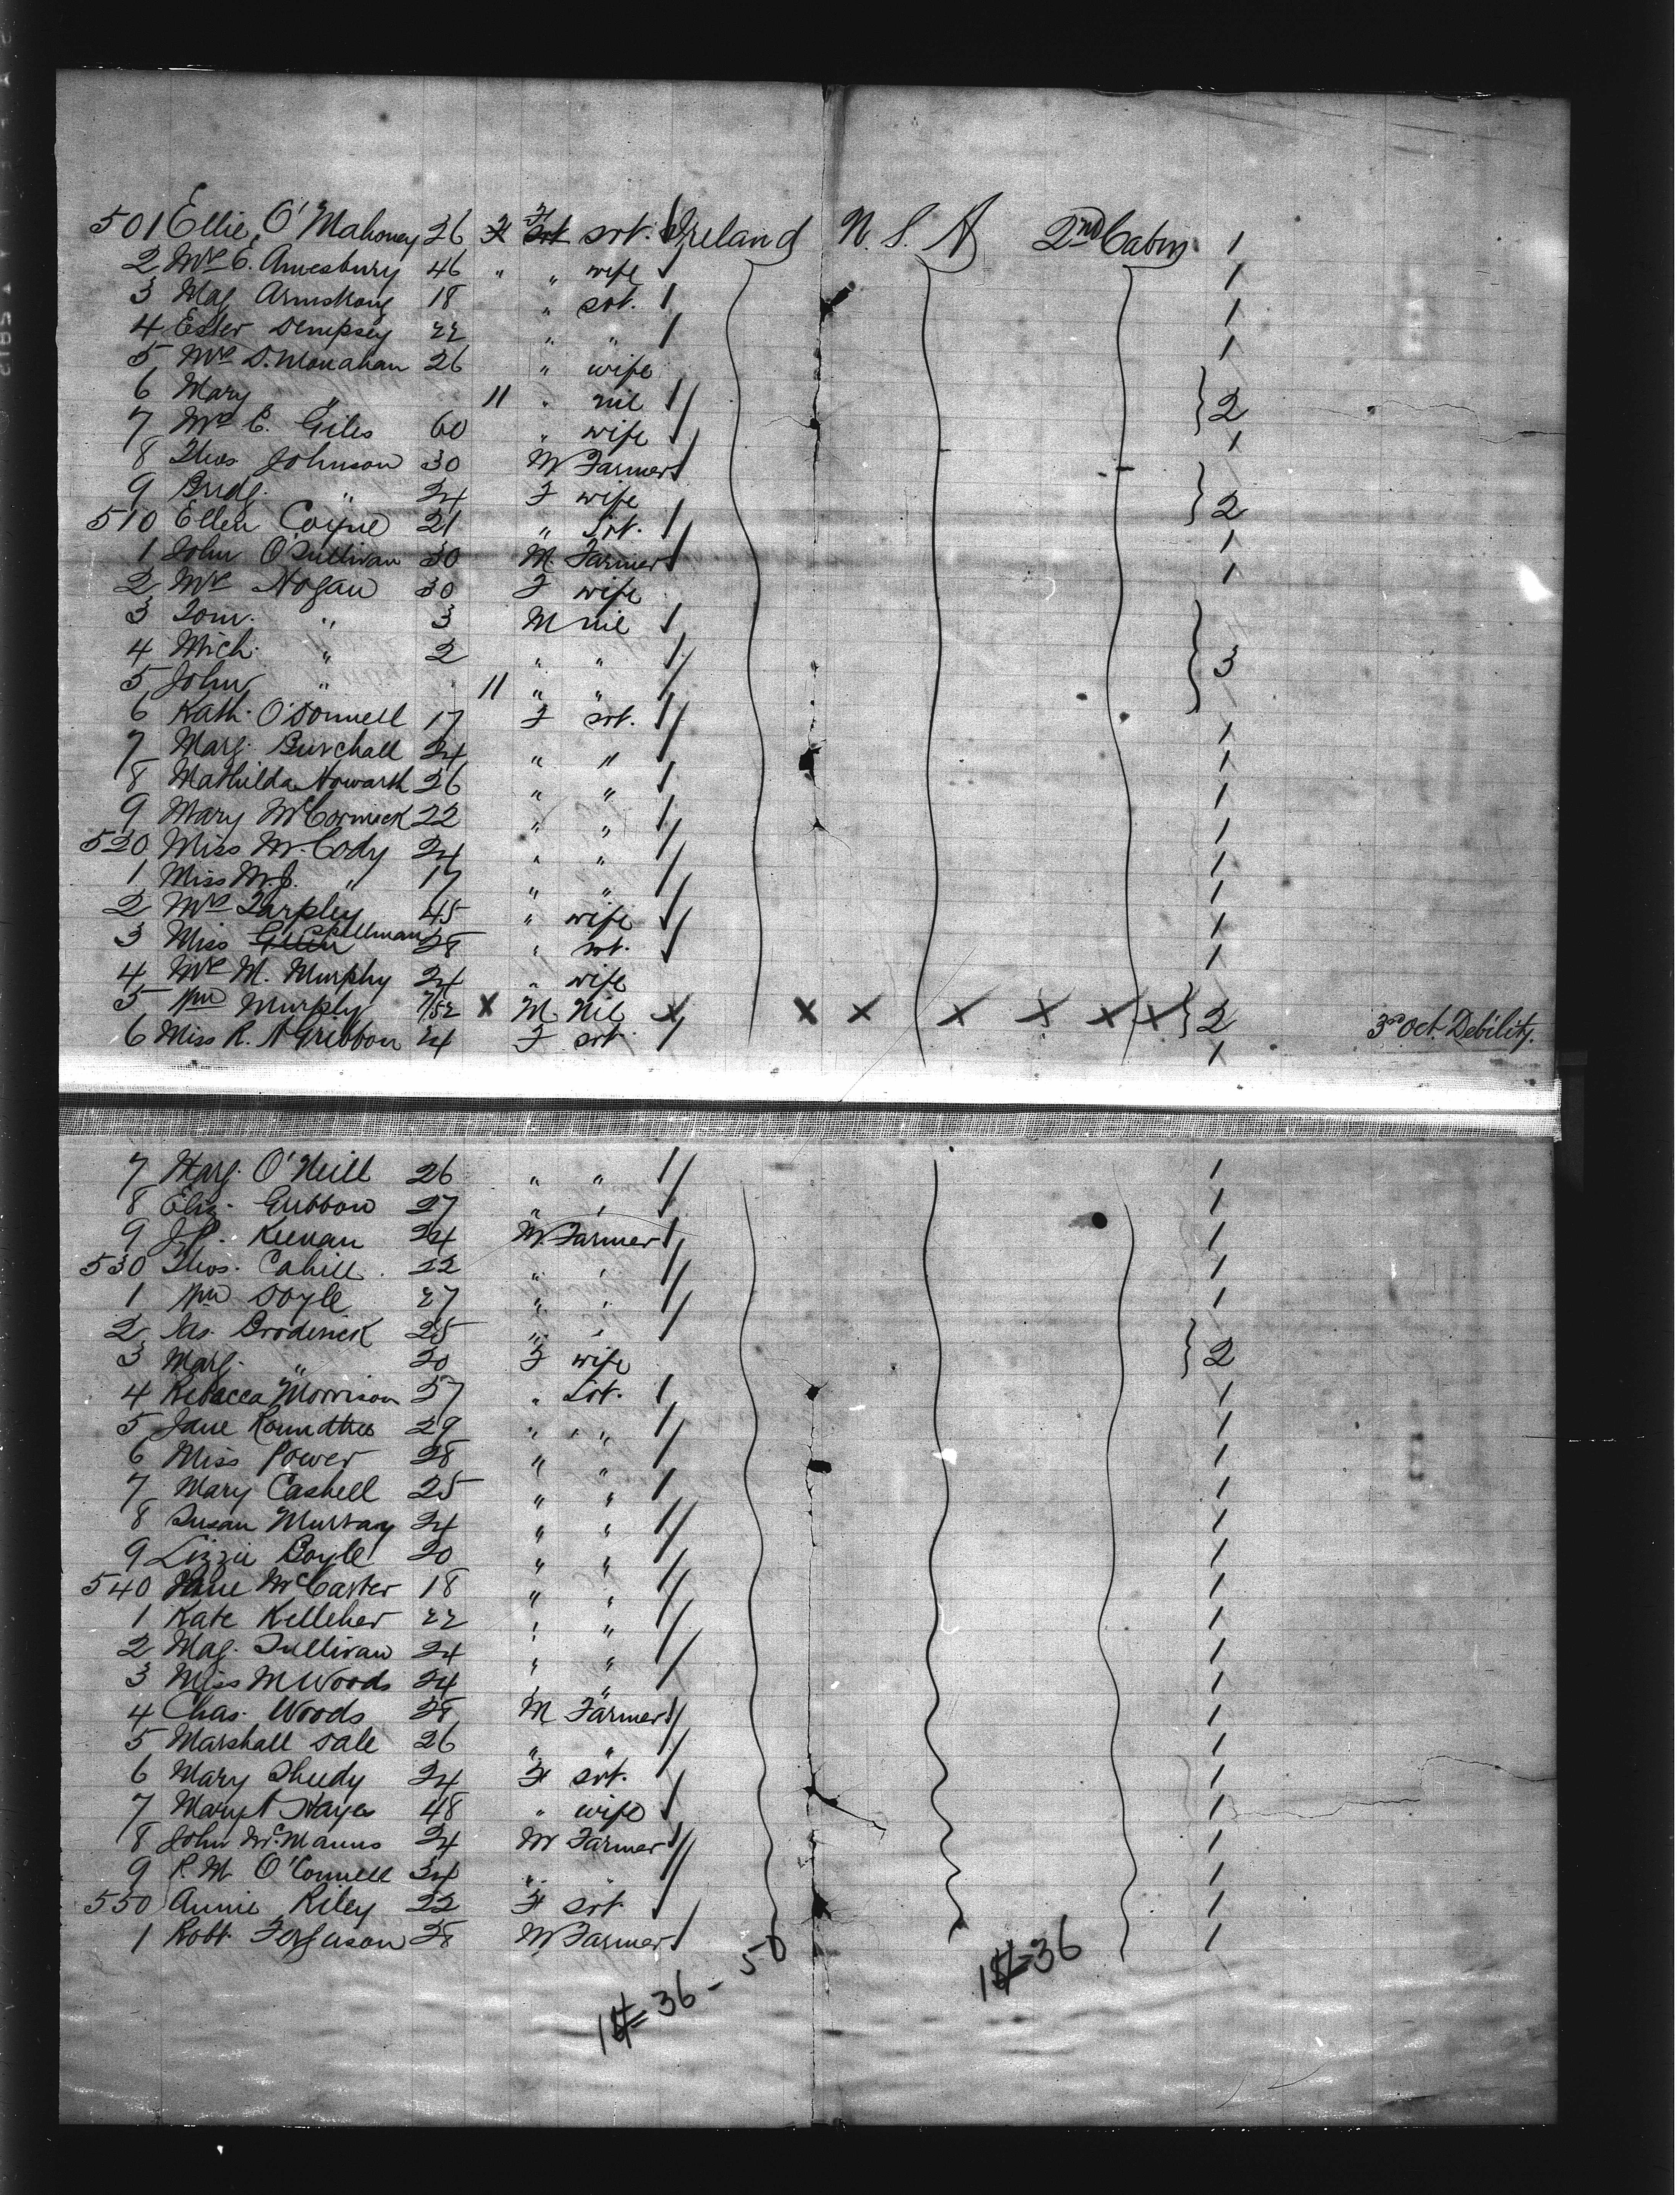 501 Ellie O'Mahoney 26 F srt. Ireland U.S.A 2nd Cabin 1
2 Mrs E. Amesbury 46 " " wife 1
3 Mag. Armstrong 18 " srt. 1
4 Ester Dempsey 22 " " 1
5 Mrs D. Monahan 26 " wife
6 Mary " 11 " nil 2
7 Mrs E. Giles 60 " wife 1
8 Thos. Johnson 30 M Farmer
9 Bridg. " 24 F wife 2
510 Ellen Coyne 21 " Srt. 1
1 John O'Sullivan 30 M. Farmer 1
2 Mrs Hogan 30 F wife
3 Tom. " 3 M nil
4 Mich. " 2 " " 3
5 John " 11 " "
6 Kath. O'Donnell 17 F srt. 1
7 Marg. Burchall 24 " " 1
8 Mathilda Howarth 26 " " 1
9 Mary McCormick 22 " " 1
520 Miss M. Cody 24 " " 1
1 Miss M.J. " 17 " " 1
2 Mrs Tarpley 45 " wife 1
3 Miss Spellman 28 " srt. 1
4 Mrs M. Murphy 24 " wife
5 Wm Murphy 7/52 X M. Nil X X X X X X X 2 3rd Oct. Debility.
6 Miss R. A Gribbon 24 F srt 1
7 Marg. O'Neill 26 " " 1
8 Eliz. Gribbon 27 " " 1
9 J.P. Keenan 24 M. Farmer 1
530 Thos. Cahill. 22 " " 1
1 Wm Doyle 27 " " 1
2 Jas. Broderick 25 " "
3 Marg. " 20 F wife 2
4 Rebecca Morrison 37 " Srt. 1
5 Jane Roundtree 29 " " 1
6 Miss Power 28 " " 1
7 Mary Cashell 25 " " 1
8 Susan Murray 24 " " 1
9 Lizzie Boyle 20 " " 1
540 Jane McCarter 18 " " 1
1 Kate Kelleher 22 " " 1
2 Mag. Sullivan 24 " " 1
3 Miss M Woods 24 " " 1
4 Chas. Woods 28 M Farmer 1
5 Marshall Dale 26 " " 1
6 Mary Sheedy 24 F srt. 1
7 Mary A Hayes 48 " wife 1
8 John McManus 24 M Farmer 1
9 P. M. O'Connell 34 " " 1
550 Annie Riley 22 F srt. 1
1 Robt. Ferguson 28 M Farmer 1